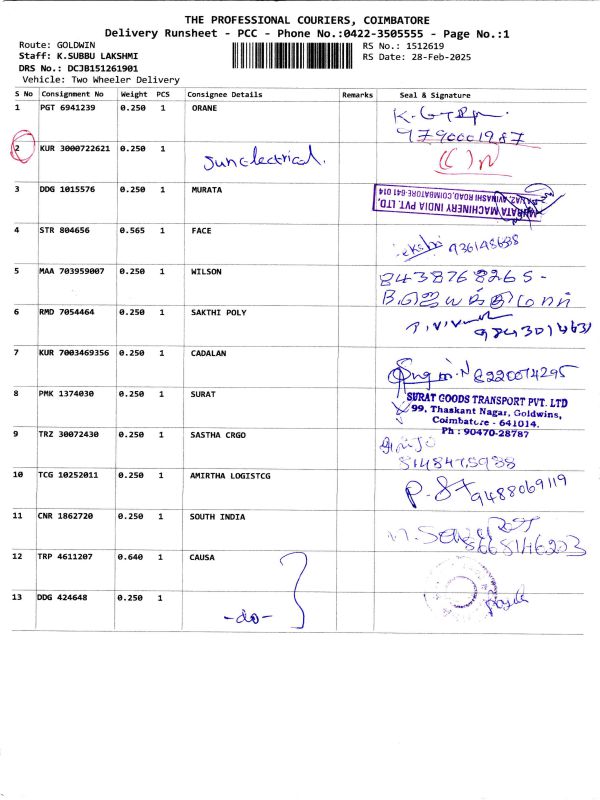 THE PROFESSIONAL COURIERS, COIMBATORE
Delivery Runsheet - PCC - Phone No.:0422-3505555 - Page No.:1
Route: GOLDWIN RS No.: 1512619
Staff: K.SUBBU LAKSHMI RS Date: 28-Feb-2025
DRS No.: DCJB151261901
Vehicle: Two Wheeler Delivery
S No Consignment No Weight PCS Consignee Details Remarks Seal & Signature
1 PGT 6941239 0.250 1 ORANE
9790001987
2 KUR 3000722621 0.250 1 Sun electrical.
3 DDG 1015576 0.250 1 MURATA
MURATA MACHINERY INDIA PVT. LTD.
AVINASHI ROAD, COIMBATORE-641 014
4 STR 804656 0.565 1 FACE
5 MAA 703959007 0.250 1 WILSON 8438768265-
6 RMD 7054464 0.250 1 SAKTHI POLY
7 KUR 7003469356 0.250 1 CADALAN 8220014295
8 PMK 1374030 0.250 1 SURAT
SURAT GOODS TRANSPORT PVT. LTD
99, Thaskant Nagar, Goldwins,
Coimbatore - 641014.
Ph : 90470-28787
9 TRZ 30072430 0.250 1 SASTHA CRGO
10 TCG 10252011 0.250 1 AMIRTHA LOGISTCG 9488069119
11 CNR 1862720 0.250 1 SOUTH INDIA
8668146203
12 TRP 4611207 0.640 1 CAUSA
13 DDG 424648 0.250 1 -do-